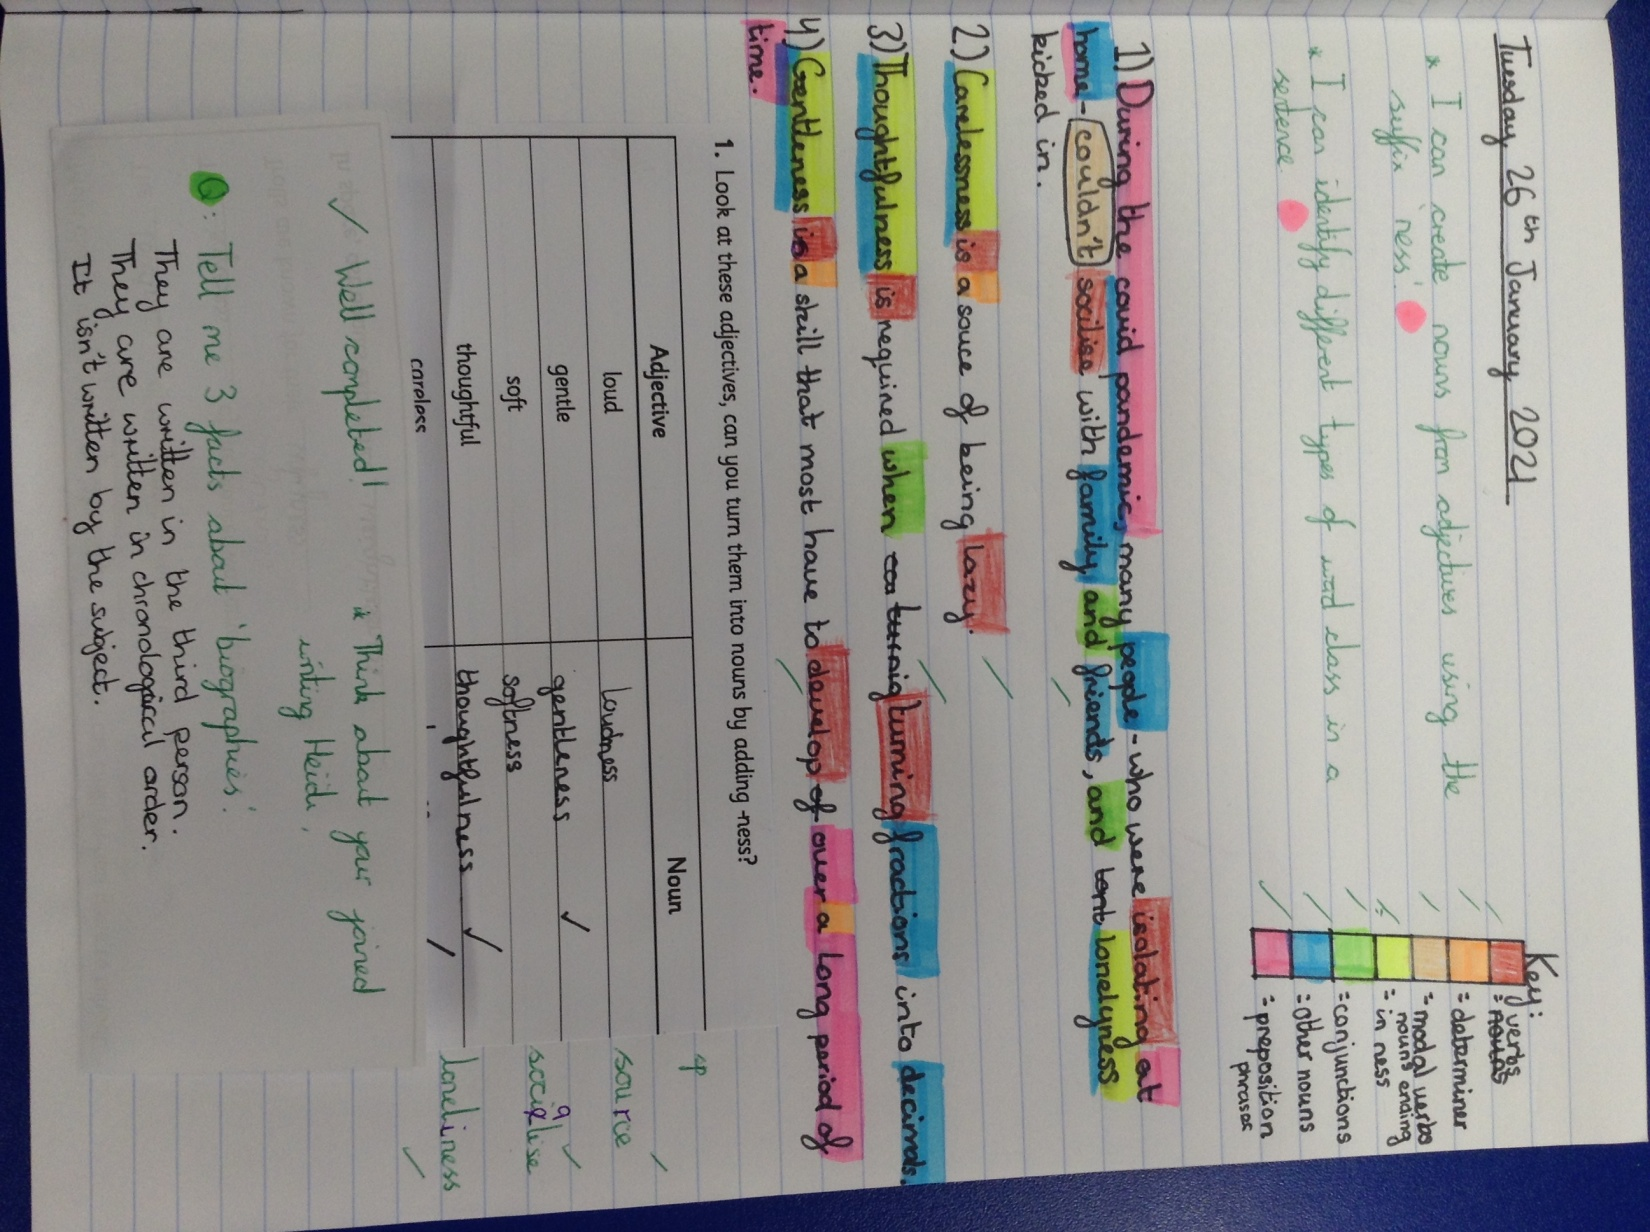 Tuesday 26th January 2021
* I can create nouns from adjectives using the
suffix 'ness'.
* I can identify different types of word class in a
sentence
Key:
= verbs nouns
= determiner
= modal verbs
= nouns ending in ness
= conjunctions
= other nouns
= preposition phrases
1) During the covid pandemic, many people - who were isolating at
home - couldn't socilise with family and friends, and lonelyness
kicked in.
2) Carelessness is a souce of being lazy.
3) Thoughtfulness is required when turning fractions into decimals.
4) Gentleness is a skill that most have to develop of over a long period of
time.
1. Look at these adjectives, can you turn them into nouns by adding -ness?
Adjective Noun
loud loudness
gentle gentleness
soft softness
thoughtful thoughtfulness
careless
sp
source
socialise
loneliness
Well completed!
* Think about your joined
writing Heidi.
Q: Tell me 3 facts about 'biographies'.
They are written in the third person.
They are written in chronological order.
It isn't written by the subject.